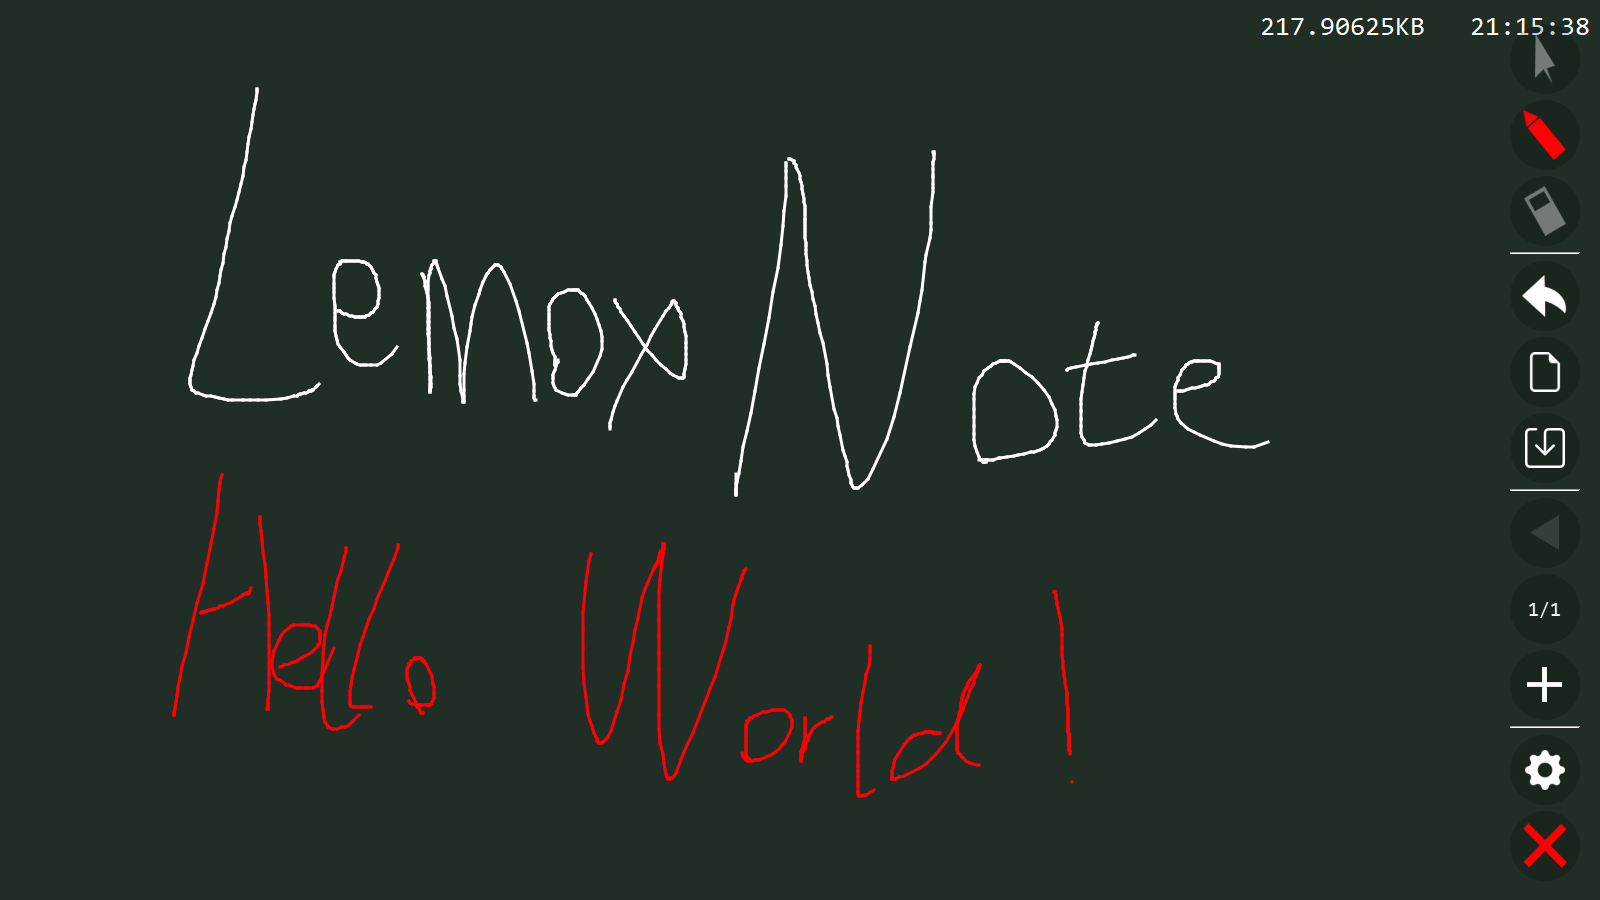 217.90625KB 21:15:38
Lemox Note
Hello World!
1/1